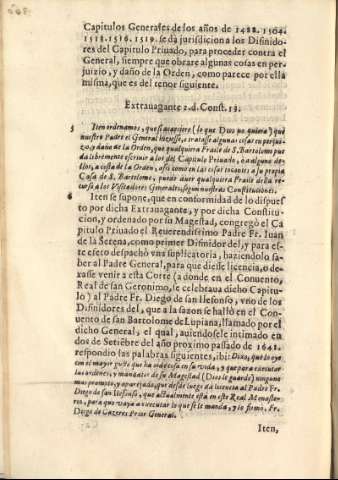 Capitulos Generales de los años de 1488. 1504.
1513. 1516. 1519. se dà jurisdicion a los Difinido-
res del Capitulo Priuado, para proceder contra el
General, siempre que obrare algunas cosas en per-
juizio, y daño de la Orden, como parece por ella
misma, que es del tenor siguiente.
Extrauagante 2. d. Const. 13.
5 Iten ordenamos, que si acaeciere (lo que Dios no quiera) que
nuestro Padre el General hiziesse, o tratasse algunas cosas en perjui-
zo, y daño de la Orden, que qualquiera Fraile de S. Bartolome pue-
da libremente escriuir a los del Capitulo Priuado, o a alguno de-
llos, a costa de la Orden, assi como en las cosas tocantes a su propia
Casa de S. Bartolome, puede dezir qualquiera Fraile della
a los Visitadores Generales, segun nuestras Constituciones.
6 Iten se supone, que en conformidad de lo dispues-
to por dicha Extrauagante, y por dicha Constitu-
cion, y ordenado por su Magestad, congregò el Ca
pitulo Priuado el Reuerendissimo Padre Fr. Iuan
de la Serena, como primer Difinidor del, y para es-
te efeto despachò vna suplicatoria, haziendolo sa-
ber al Padre General, para que diesse licencia, o de-
xasse venir a esta Corte (a donde en el Conuento,
Real de san Geronimo, se celebraua dicho Capitu-
lo) al Padre Fr. Diego de san Ilefonso, vno de los
Difinidores del, que a la sazon se hallò en el Con-
uento de san Bartolome de Lupiana, llamado por el
dicho General, el qual, auiendosele intimado en
dos de Setiẽbre del año proximo passado de 1642.
respondio las palabras siguientes, ibi: Dixo, que lo oye
con el mayor gusto que ha oido cosa en su vida, y que para executar
las ordenes, y mandatos de su Magestad (Dios le guarde) ninguno
mas prompto, y aparejado, que desde luego da licencia al Padre Fr.
Diego de san Ilefonso, que actualmente està en este Real Monaste-
rio, para que vaya a executar lo que se le manda, y lo firmò, Fr.
Diego de Cazeres Prior General.
Iten,